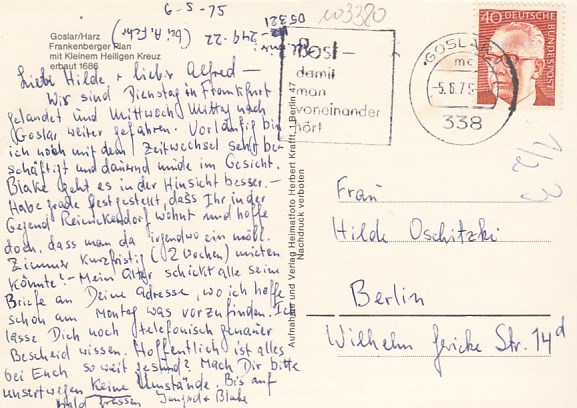 5-6-75
05321
249-22 (bei A. Fehr)
Goslar/Harz
Frankenberger Plan
mit Kleinem Heiligen Kreuz
erbaut 1686
Liebe Hilde + lieber Alfred—
Wir sind Dienstag in Frankfurt
gelandet und Mittwoch Mittag nach
Goslar weiter gefahren. Vorläufig bin
ich noch mit dem Zeitwechsel sehr be-
schäftigt und dauernd müde im Gesicht.
Blake geht es in der Hinsicht besser.—
Habe grade festgestellt, dass Ihr in der
Gegend Reinickendorf wohnt und hoffe
doch, dass man da irgendwo ein möbl.
Zimmer kurzfristig (2 Wochen) mieten
könnte!— Mein Alter schickt alle seine
Briefe an Deine Adresse, wo ich hoffe
schon am Montag was vorzufinden. Ich
lasse Dich noch telefonisch genauer
Bescheid wissen. Hoffentlich ist alles
bei Euch so weit gesund? Mach Dir bitte
unsertwegen keine Umstände. Bis auf
bald grüssen Ingrid + Blake
Aufnahme und Verlag Heimatfoto Herbert Krafft, 1 Berlin 47
Nachdruck verboten
103320
Post-
damit
man
voneinander
hört
GOSLAR
-5.6.75
338
40
DEUTSCHE
BUNDESPOST
1/2
3
Frau
Hilde Oschitzki
Berlin
Wilhelm Gericke Str. 14d